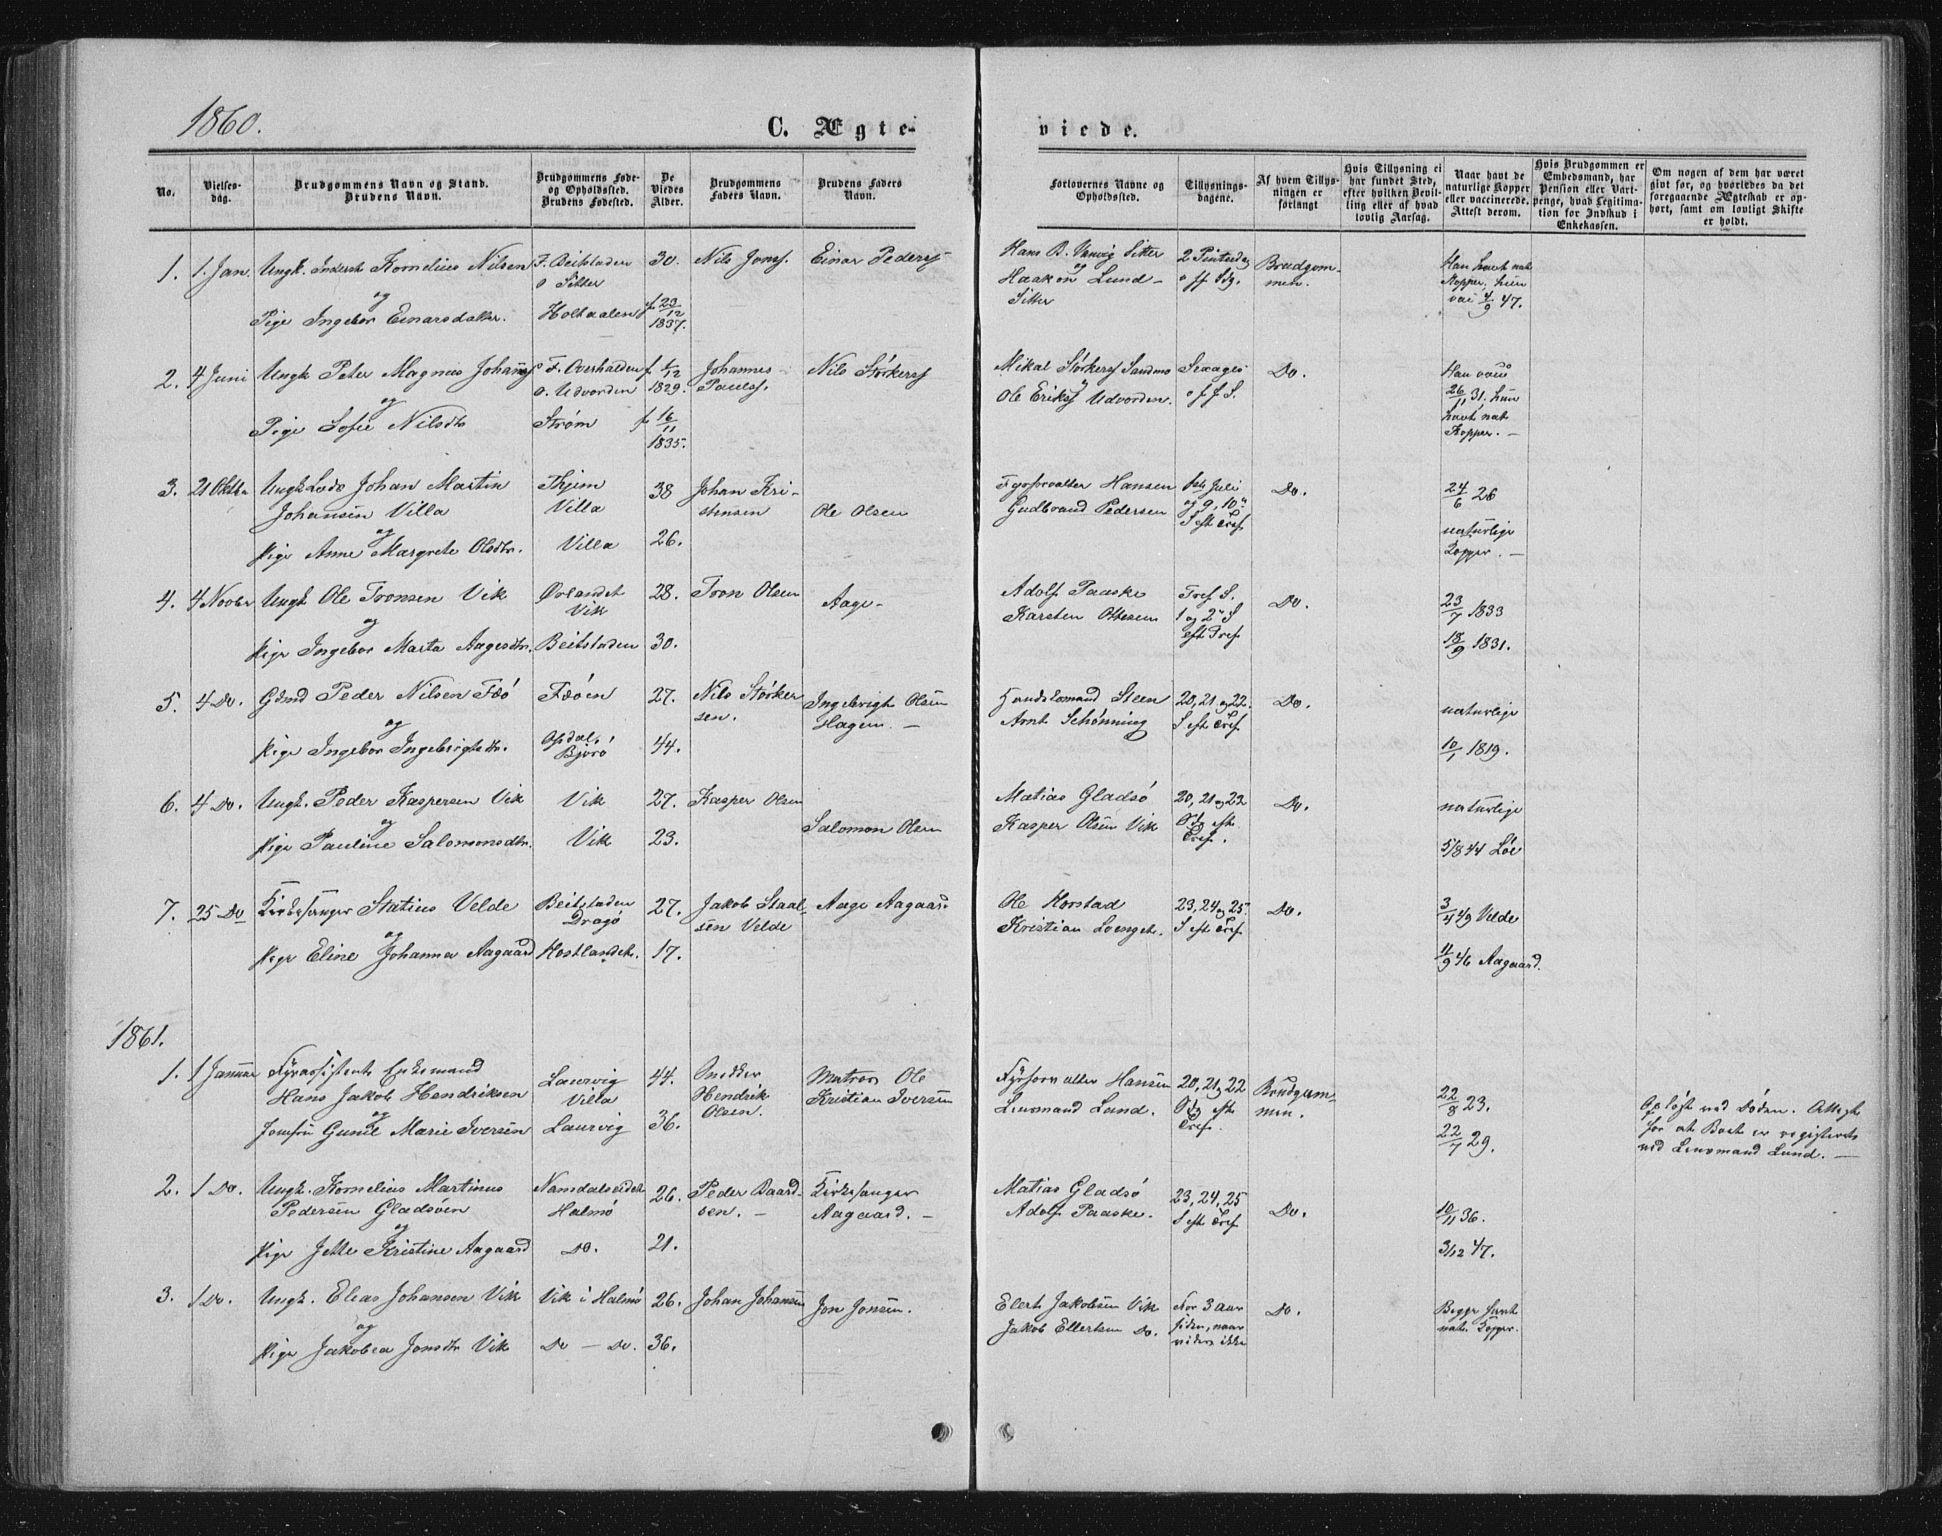 1860.
C. Ægte-
viede.
No.
Vielses-
dag.
Brudgommens Navn og Stand.
Brudens Navn.
Brudgommens Føde-
og Opholdssted.
Brudens Fødested.
De
Viedes
Alder.
Brudgommens
Faders Navn.
Brudens Faders
Navn.
Forlovernes Navne og
Opholdssted.
Tillysnings-
dagene.
Af hvem Tillys-
ningen er
forlangt
Hvis Tillysning ei
har fundet Sted,
efter hvilken Bevil-
ling eller af hvad
lovlig Aarsag.
Naar havt de
naturlige Kopper
eller vaccinerede.
Attest derom.
Hvis Brudgommen er
Embedsmand, har
Pension eller Vart-
penge, hvad Legitima-
tion for Indskud i
Enkekassen.
Om nogen af dem har været
givt før, og hvorledes da det
foregaaende Ægteskab er op-
hørt, samt om lovligt Skifte
er holdt.
1. 1. Jan. Ungk. Inderst Kornelius Nilsen F. Beitstaden 30. Nils Jons. Einar Peders
o Sitter
og
Pige Ingebor Einarsdatter. Holtaalen f 23/12
1837.
Hans B. Vanvig Sitter 2 Pintsedag Brudgom-
og
Haakon Lund - o ff Sdg. men.
Sitter
Han havt nat
Kopper, hun
vac 4/9 47.
2. 4 Juni Ungk Peter Magnus Johans F. Overhalden f 1/12 Johannes Nils Størkers
o. Udvorden 1829. Pauls.
og
Pige Sofie Nilsdtr Strøm f 16/11
1835.
Mikal Størkers Sandmo Do.
Ole Eriks Udvorden. o f f S.
Han vacc
26/11 31. hun
havt nat
Kopper. -
3. 21 Oktbr Ungk Lods Johan Martin Thjem 38 Johan Kri-
Johansen Villa Villa stensen Ole Olsen
og
Pige Anne Margrete Olsdtr. Villa 26.
Fyrforvalter Hansen Juli Do.
Gudbrand Pedersen og 9, 10
S eft Tref
24/6 26
naturlige
Kopper. -
4. 4 Novbr Ungk Ole Tronsen Vik Ørlandet 28. Tron Olsen Aage -
Vik
og
Pige Ingebor Marta Aagesdtr. Beitstaden 30.
Adolf Paaske Tref S. Do.
Karsten Ottesen 1 og 2 S
eft Tref
23/7 1833
18/9 1831.
5. 4 Do. Gdmd Peder Nilsen Fæø Fæøen 27. Nils Størker Ingebrigt Olsen
sen. Hagen. -
og
Pige Ingebor Ingebrigtsdtr. Opdal, 44.
Bjørø
Handelsmand Steen 20, 21 og 22. Do.
Arnt Schønning S eft Tref
naturlige
10/1 1819.
6. 4 Do. Ungk. Peder Kaspersen Vik Vik 27. Kasper Olsen
og Salomon Olsen
Pige Pauline Salomonsdtr. Vik 23.
Matias Gladsø 20, 21 og 22 Do.
Kasper Olsen Vik Sdg eft
Tref.
naturlige
5/8 44 Løe
7. 25 Do Kirkesanger Statius Velde Beitstaden 27. Jakob Staal- Aage Aagaard
Dragø sen Velde
og
Pige Eline Johanna Aagaard Hostlandet. 17.
Ole Horstad 23, 24 og 25. Do.
Kristian Loenget. S eft Tref
3/4 49 Velde
11/9 46 Aagaard.
1861.
1. 1 Januar Fyrassistent Enkemand Laurvig 44. Snedker Matros Ole
Hans Jakob Hendriksen Villa Hendrik Kristian Iversen
og Olsen.
Jomfru Gunil Marie Iversen Laurvig 36.
Fyrforvalter Hansen 20, 21 og 22 Brudgom-
Lensmand Lund. Sdg eft men.
Tref.
22/8 23.
22/7 29.
Opløst ved Døden. Attest
for at Boet er registeret
ved Lensmand Lund. -
2. 1 Do. Ungk. Kornelius Martinus Namdalseidet 26. Peder Baard- Kirkesanger
Pedersen Gladsøen Halmø sen. - Aagaard. -
og
Pige Jette Kristine Aagaard Do. 21.
Matias Gladsø 23, 24, 25
Adolf Paaske. S eft Tref Do.
10/11 36.
3/12 47.
3. 1 Do. Ungk. Elias Johansen Vik Vik i Halmø 26. Johan Johansen Jon Jonsen.
og
Pige Jakobea Jonsdtr Vik Do - Do. 36.
Elert Jakobsen Vik For 3 aar Do.
Jakob Ellertsen Do. siden, naar
vides ikke
Begge havt
nat. Kopper.